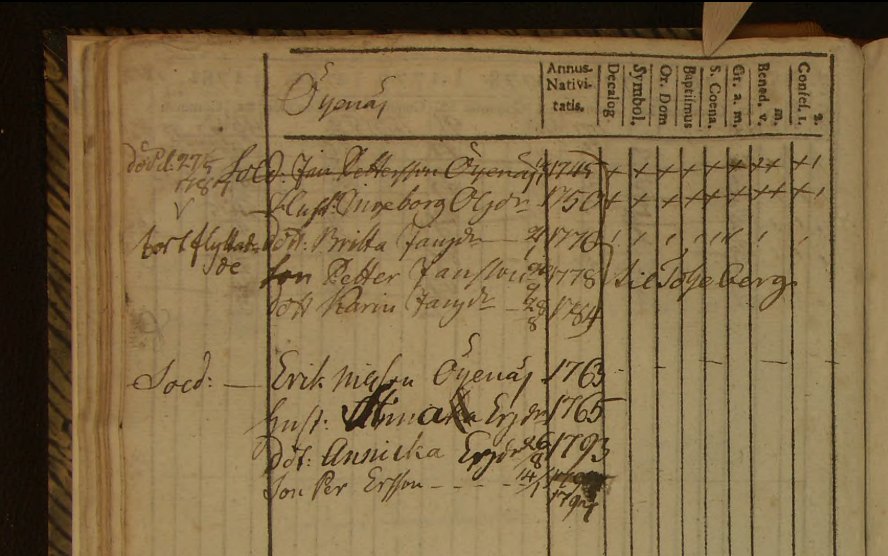 Öyenäs
Annus Nativitatis. Decalog. Symbol. Or. Dom Baptismus S. Coena. Gr. a. m. Bened. v. m. Confes. 1. 2.
död d. 27/5 1784 Sold. Jan Pettersson Öyenäs 1745 + + + + + + + +
Hust. Ingeborg Olsdr 1750 + + + + + + + +
bortflyttade dött: Britta Jansdr 1776
son Petter Jansson 1778 til Tose berg
dott Karin Jansdr 28/8 1784
Sold: — Erik Nilsson Öyenäs 1763
Hust: Annika Ersdr 1765
döt: Annicka Ersdr 26/8 1793
Son Per Ersson - - - - 14/1 1797